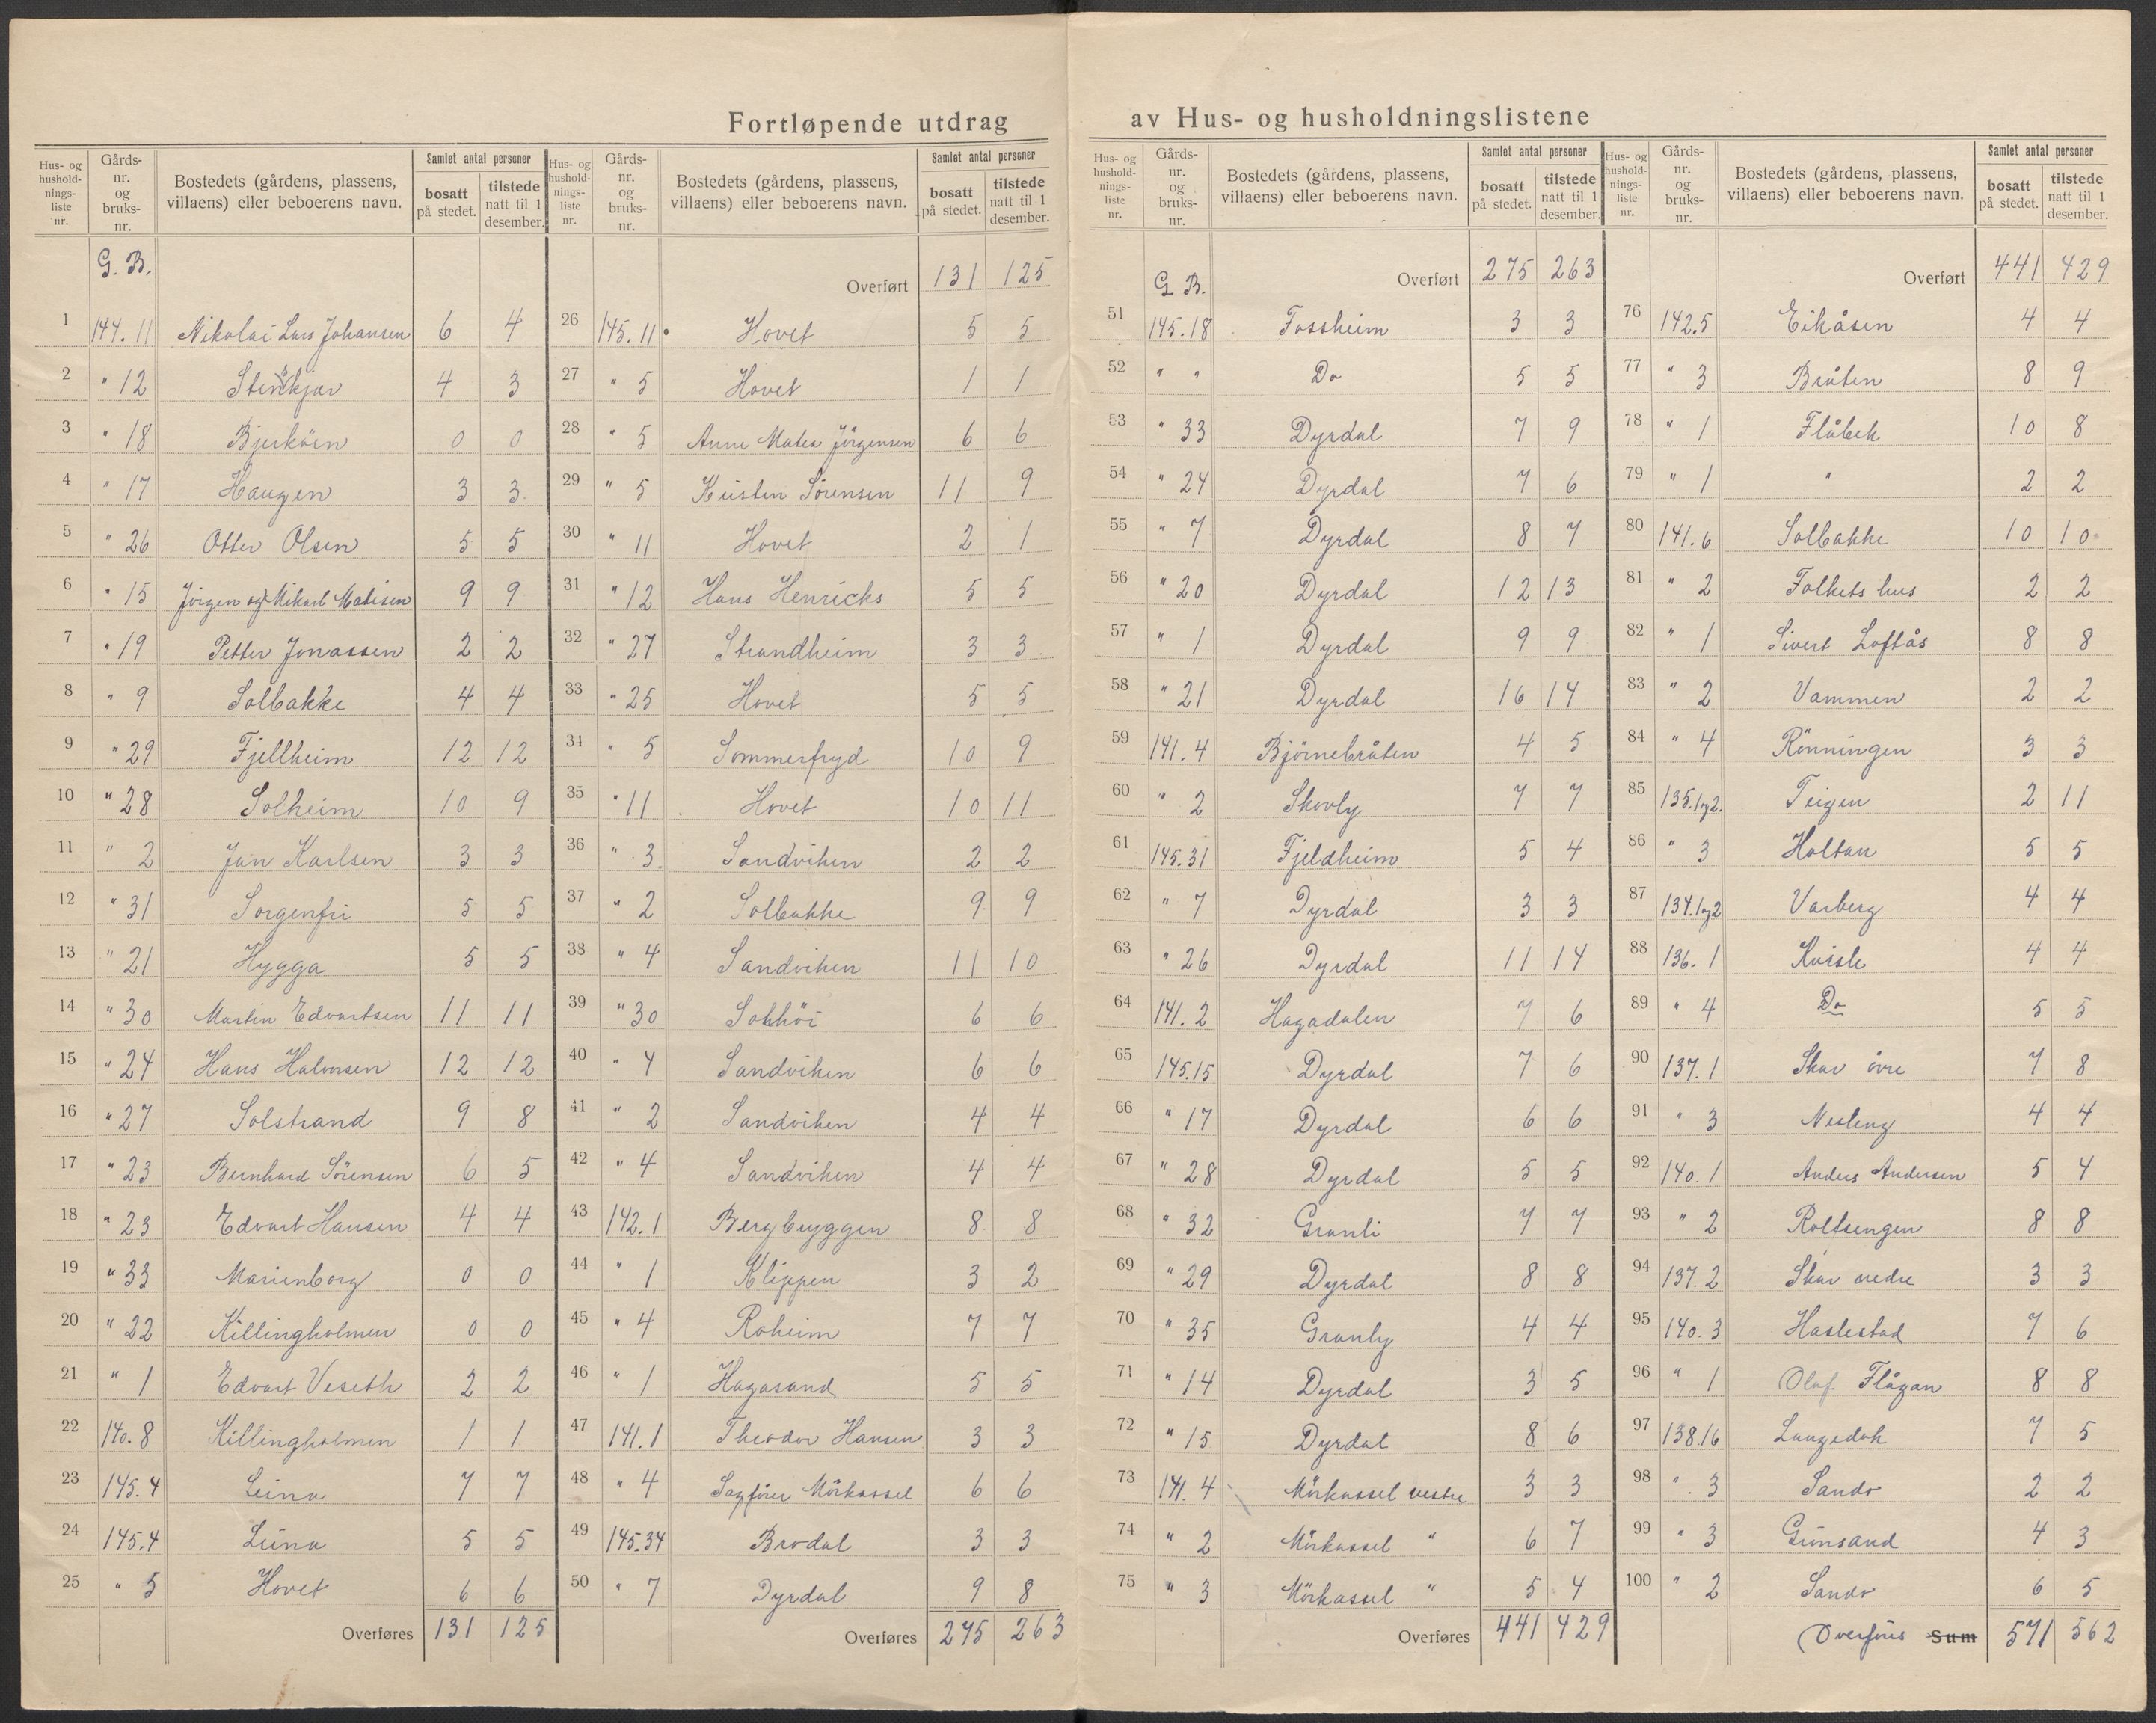 Fortløpende utdrag av Hus- og husholdningslistene
Hus- og husholdnings- liste nr. | Gårds- nr. og bruks- nr. | Bostedets (gårdens, plassens, villaens) eller beboerens navn. | Samlet antal personer | bosatt på stedet. | tilstede natt til 1 desember.
G. B.
1 144. 11 Nikolai Lars Johansen 6 4
2 " 12 Stenkjær 4 3
3 " 18 Bjerköen 0 0
4 " 17 Haugen 3 3
5 " 26 Otter Olsen 5 5
6 " 15 Jörgen og Mikael Matisen 9 9
7 " 19 Petter Jonassen 2 2
8 " 9 Solbakke 4 4
9 " 29 Fjellheim 12 12
10 " 28 Solheim 10 9
11 " 2 Jan Karlsen 3 3
12 " 31 Sorgenfri 5 5
13 " 21 Hygga 5 5
14 " 30 Martin Edvartsen 11 11
15 " 24 Hans Halvorsen 12 12
16 " 27 Solstrand 9 8
17 " 23 Bernhard Sörensen 6 5
18 " 23 Edvart Hansen 4 4
19 " 33 Marienborg 0 0
20 " 22 Killingholmen 0 0
21 " 1 Edvart Veseth 2 2
22 140. 8 Killingholmen 1 1
23 145. 4 Leina 7 7
24 145. 4 Leina 5 5
25 " 5 Hovet 6 6
Overføres 131 125
Hus- og husholdnings- liste nr. | Gårds- nr. og bruks- nr. | Bostedets (gårdens, plassens, villaens) eller beboerens navn. | Samlet antal personer | bosatt på stedet. | tilstede natt til 1 desember.
Overført 131 125
26 145. 11 Hovet 5 5
27 " 5 Hovet 1 1
28 " 5 Anne Matea Jörgensen 6 6
29 " 5 Kristen Sörensen 11 9
30 " 11 Hovet 2 1
31 " 12 Hans Henricks 5 5
32 " 27 Strandheim 3 3
33 " 25 Hovet 5 5
34 " 5 Sommerfryd 10 9
35 " 11 Hovet 10 11
36 " 3 Sandviken 2 2
37 " 2 Solbakke 9 9
38 " 4 Sandviken 11 10
39 " 30 Solhöi 6 6
40 " 4 Sandviken 6 6
41 " 2 Sandviken 4 4
42 " 4 Sandviken 4 4
43 142. 1 Bergbryggen 8 8
44 " 1 Klippen 3 2
45 " 4 Roheim 7 7
46 " 1 Hagasand 5 5
47 141. 1 Theodor Hansen 3 3
48 " 4 Sagförer Mörkassel 6 6
49 145. 34 Brodal 3 3
50 " 7 Dyrdal 9 8
Overføres 275 263
Hus- og husholdnings- liste nr. | Gårds- nr. og bruks- nr. | Bostedets (gårdens, plassens, villaens) eller beboerens navn. | Samlet antal personer | bosatt på stedet. | tilstede natt til 1 desember.
G. B. Overført 275 263
51 145. 18 Fossheim 3 3
52 " " Do 5 5
53 " 33 Dyrdal 7 9
54 " 24 Dyrdal 7 6
55 " 7 Dyrdal 8 7
56 " 20 Dyrdal 12 13
57 " 1 Dyrdal 9 9
58 " 21 Dyrdal 16 14
59 141. 4 Björnebråten 4 5
60 " 2 Skovly 7 7
61 145. 31 Fjeldheim 5 4
62 " 7 Dyrdal 3 3
63 " 26 Dyrdal 11 14
64 141. 2 Hagadalen 7 6
65 145. 15 Dyrdal 7 6
66 " 17 Dyrdal 6 6
67 " 28 Dyrdal 5 5
68 " 32 Granli 7 7
69 " 29 Dyrdal 8 8
70 " 35 Granly 4 4
71 " 14 Dyrdal 3 5
72 " 15 Dyrdal 8 6
73 141. 4 Mörkassel vestre 3 3
74 " 2 Mörkassel " 6 7
75 " 3 Mörkassel " 5 4
Overføres 441 429
Hus- og husholdnings- liste nr. | Gårds- nr. og bruks- nr. | Bostedets (gårdens, plassens, villaens) eller beboerens navn. | Samlet antal personer | bosatt på stedet. | tilstede natt til 1 desember.
Overført 441 429
76 142. 5 Eikåsen 4 4
77 " 3 Bråten 8 9
78 " 1 Flåbek 10 8
79 " 1 " 2 2
80 141. 6 Solbakke 10 10
81 " 2 Folkets hus 2 2
82 " 1 Sivert Loftås 8 8
83 " 2 Vammen 2 2
84 " 4 Rönningen 3 3
85 135. 1og2. Teigen 2 11
86 " 3 Holtan 5 5
87 134. 1og2 Varberg 4 4
88 136. 1 Kvisle 4 4
89 " 4 Do 5 5
90 137. 1 Skar övre 7 8
91 " 3 Nesleng 4 4
92 140. 1 Anders Andersen 5 4
93 " 2 Roltsengen 8 8
94 137. 2 Skar nedre 3 3
95 140. 3 Haslestad 7 6
96 " 1 Olaf Flågan 8 8
97 138. 16 Langedok 7 5
98 " 3 Sando 2 2
99 " 3 Grimsand 4 3
100 " 2 Sando 6 5
Overföres Sum 571 562